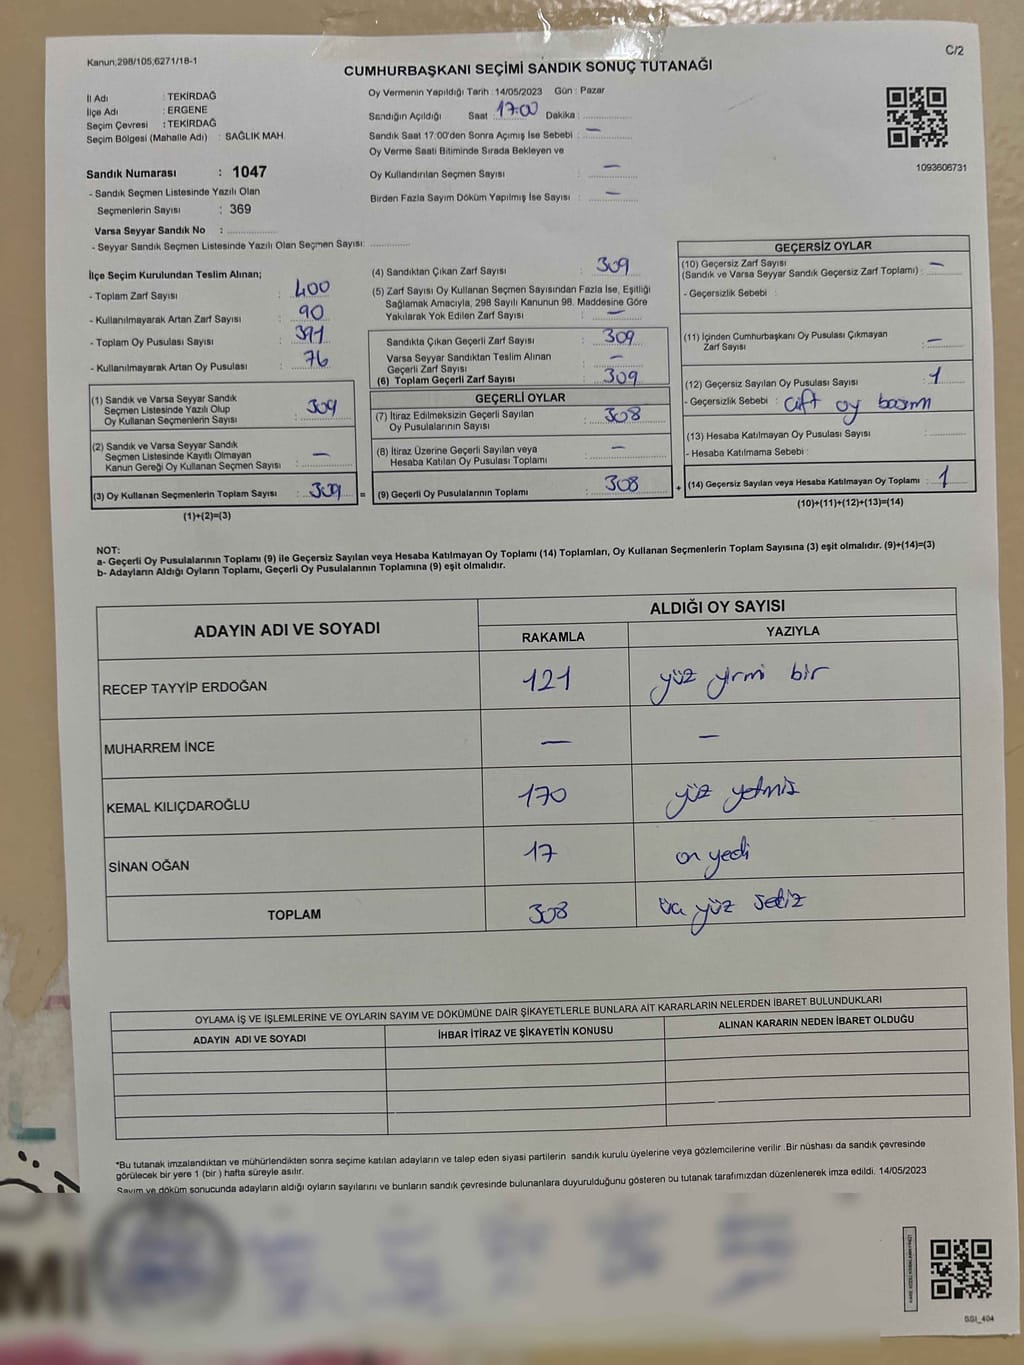 Kanun;298/105;6271/18-1
C/2
CUMHURBAŞKANI SEÇİMİ SANDIK SONUÇ TUTANAĞI
İl Adı : TEKİRDAĞ
İlçe Adı : ERGENE
Seçim Çevresi : TEKİRDAĞ
Seçim Bölgesi (Mahalle Adı) : SAĞLIK MAH.
Sandık Numarası : 1047
- Sandık Seçmen Listesinde Yazılı Olan
Seçmenlerin Sayısı : 369
Varsa Seyyar Sandık No :
- Seyyar Sandık Seçmen Listesinde Yazılı Olan Seçmen Sayısı:
Oy Vermenin Yapıldığı Tarih : 14/05/2023 Gün : Pazar
Sandığın Açıldığı Saat : 17:00 Dakika :
Sandık Saat 17:00'den Sonra Açımış İse Sebebi : —
Oy Verme Saati Bitiminde Sırada Bekleyen ve
Oy Kullandırılan Seçmen Sayısı : —
Birden Fazla Sayım Döküm Yapılmış İse Sayısı : —
1093606731
İlçe Seçim Kurulundan Teslim Alınan;
- Toplam Zarf Sayısı : 400
- Kullanılmayarak Artan Zarf Sayısı : 90
- Toplam Oy Pusulası Sayısı : 391
- Kullanılmayarak Artan Oy Pusulası : 76
(1) Sandık ve Varsa Seyyar Sandık
Seçmen Listesinde Yazılı Olup
Oy Kullanan Seçmenlerin Sayısı : 309
(2) Sandık ve Varsa Seyyar Sandık
Seçmen Listesinde Kayıtlı Olmayan
Kanun Gereği Oy Kullanan Seçmen Sayısı : —
(3) Oy Kullanan Seçmenlerin Toplam Sayısı : 309
(1)+(2)=(3)
(4) Sandıktan Çıkan Zarf Sayısı : 309
(5) Zarf Sayısı Oy Kullanan Seçmen Sayısından Fazla İse, Eşitliği
Sağlamak Amacıyla, 298 Sayılı Kanunun 98. Maddesine Göre
Yakılarak Yok Edilen Zarf Sayısı : —
Sandıkta Çıkan Geçerli Zarf Sayısı : 309
Varsa Seyyar Sandıktan Teslim Alınan
Geçerli Zarf Sayısı : —
(6) Toplam Geçerli Zarf Sayısı : 309
GEÇERLİ OYLAR
(7) İtiraz Edilmeksizin Geçerli Sayılan
Oy Pusulalarının Sayısı : 308
(8) İtiraz Üzerine Geçerli Sayılan veya
Hesaba Katılan Oy Pusulası Toplamı : —
= (9) Geçerli Oy Pusulalarının Toplamı : 308
GEÇERSİZ OYLAR
(10) Geçersiz Zarf Sayısı
(Sandık ve Varsa Seyyar Sandık Geçersiz Zarf Toplamı) : —
- Geçersizlik Sebebi :
(11) İçinden Cumhurbaşkanı Oy Pusulası Çıkmayan
Zarf Sayısı : —
(12) Geçersiz Sayılan Oy Pusulası Sayısı : 1
- Geçersizlik Sebebi : Çift oy basımı
(13) Hesaba Katılmayan Oy Pusulası Sayısı :
- Hesaba Katılmama Sebebi :
+ (14) Geçersiz Sayılan veya Hesaba Katılmayan Oy Toplamı : 1
(10)+(11)+(12)+(13)=(14)
NOT:
a- Geçerli Oy Pusulalarının Toplamı (9) ile Geçersiz Sayılan veya Hesaba Katılmayan Oy Toplamı (14) Toplamları, Oy Kullanan Seçmenlerin Toplam Sayısına (3) eşit olmalıdır. (9)+(14)=(3)
b- Adayların Aldığı Oyların Toplamı, Geçerli Oy Pusulalarının Toplamına (9) eşit olmalıdır.
ADAYIN ADI VE SOYADI
ALDIĞI OY SAYISI
RAKAMLA YAZIYLA
RECEP TAYYİP ERDOĞAN 121 yüz yirmi bir
MUHARREM İNCE — —
KEMAL KILIÇDAROĞLU 170 yüz yetmiş
SİNAN OĞAN 17 on yedi
TOPLAM 308 üç yüz sekiz
OYLAMA İŞ VE İŞLEMLERİNE VE OYLARIN SAYIM VE DÖKÜMÜNE DAİR ŞİKAYETLERLE BUNLARA AİT KARARLARIN NELERDEN İBARET BULUNDUKLARI
ADAYIN ADI VE SOYADI İHBAR İTİRAZ VE ŞİKAYETİN KONUSU ALINAN KARARIN NEDEN İBARET OLDUĞU
*Bu tutanak imzalandıktan ve mühürlendikten sonra seçime katılan adayların ve talep eden siyasi partilerin sandık kurulu üyelerine veya gözlemcilerine verilir .Bir nüshası da sandık çevresinde
görülecek bir yere 1 (bir ) hafta süreyle asılır.
Sayım ve döküm sonucunda adayların aldığı oyların sayılarını ve bunların sandık çevresinde bulunanlara duyurulduğunu gösteren bu tutanak tarafımızdan düzenlenerek imza edildi. 14/05/2023
SSI_404